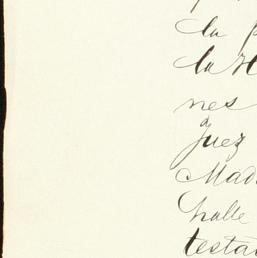 la p
la H
nes
a
Juez
Mad
halle
testa